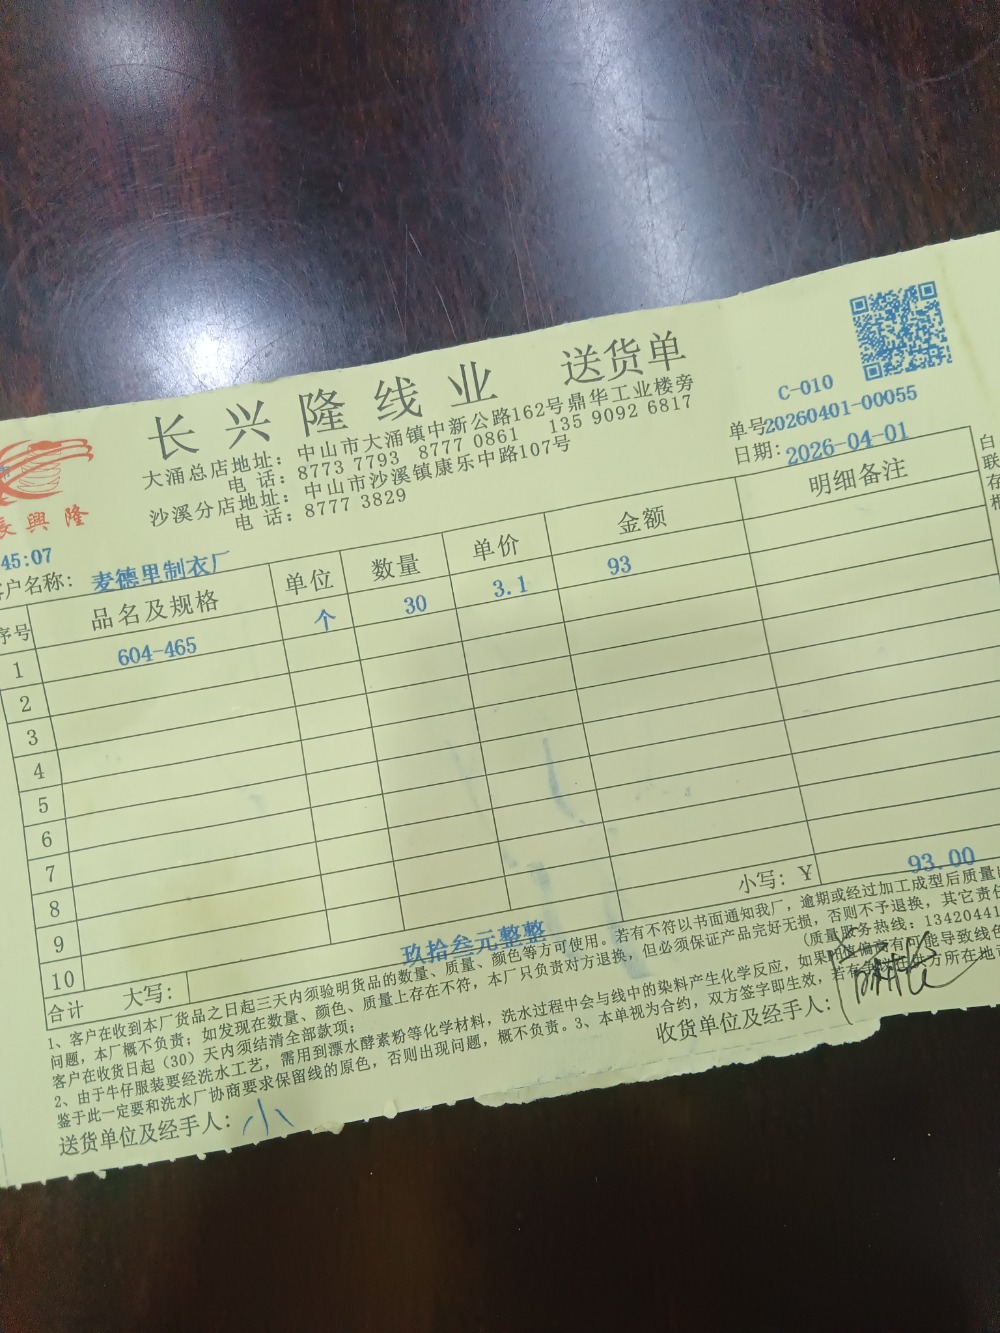 长兴隆线业 送货单
大涌总店地址：中山市大涌镇中新公路162号鼎华工业楼旁
电 话：8773 7793 8777 0861 135 9092 6817
沙溪分店地址：中山市沙溪镇康乐中路107号
电 话：8777 3829
C-010
单号20260401-00055
日期：2026-04-01
長興隆
45:07
客户名称：麦德里制衣厂
序号 品名及规格 单位 数量 单价 金额 明细备注
1 604-465 个 30 3.1 93
2
3
4
5
6
7
8
9
10
合计 大写：玖拾叁元整整 小写：¥ 93.00
1、客户在收到本厂货品之日起三天内须验明货品的数量、质量、颜色等方可使用。若有不符以书面通知我厂，逾期或经过加工成型后质量
问题，本厂概不负责；如发现在数量、颜色、质量上存在不符，本厂只负责对方退换，但必须保证产品完好无损，否则不予退换，其它责任
客户在收货日起（30）天内须结清全部款项；
(质量服务热线：13420441
2、由于牛仔服装要经洗水工艺，需用到漂水酵素粉等化学材料，洗水过程中会与线中的染料产生化学反应，如果 值偏高有可能导致线色
鉴于此一定要和洗水厂协商要求保留线的原色，否则出现问题，概不负责。3、本单视为合约，双方签字即生效，若有 方所在地
送货单位及经手人：小
收货单位及经手人：
白
联
存